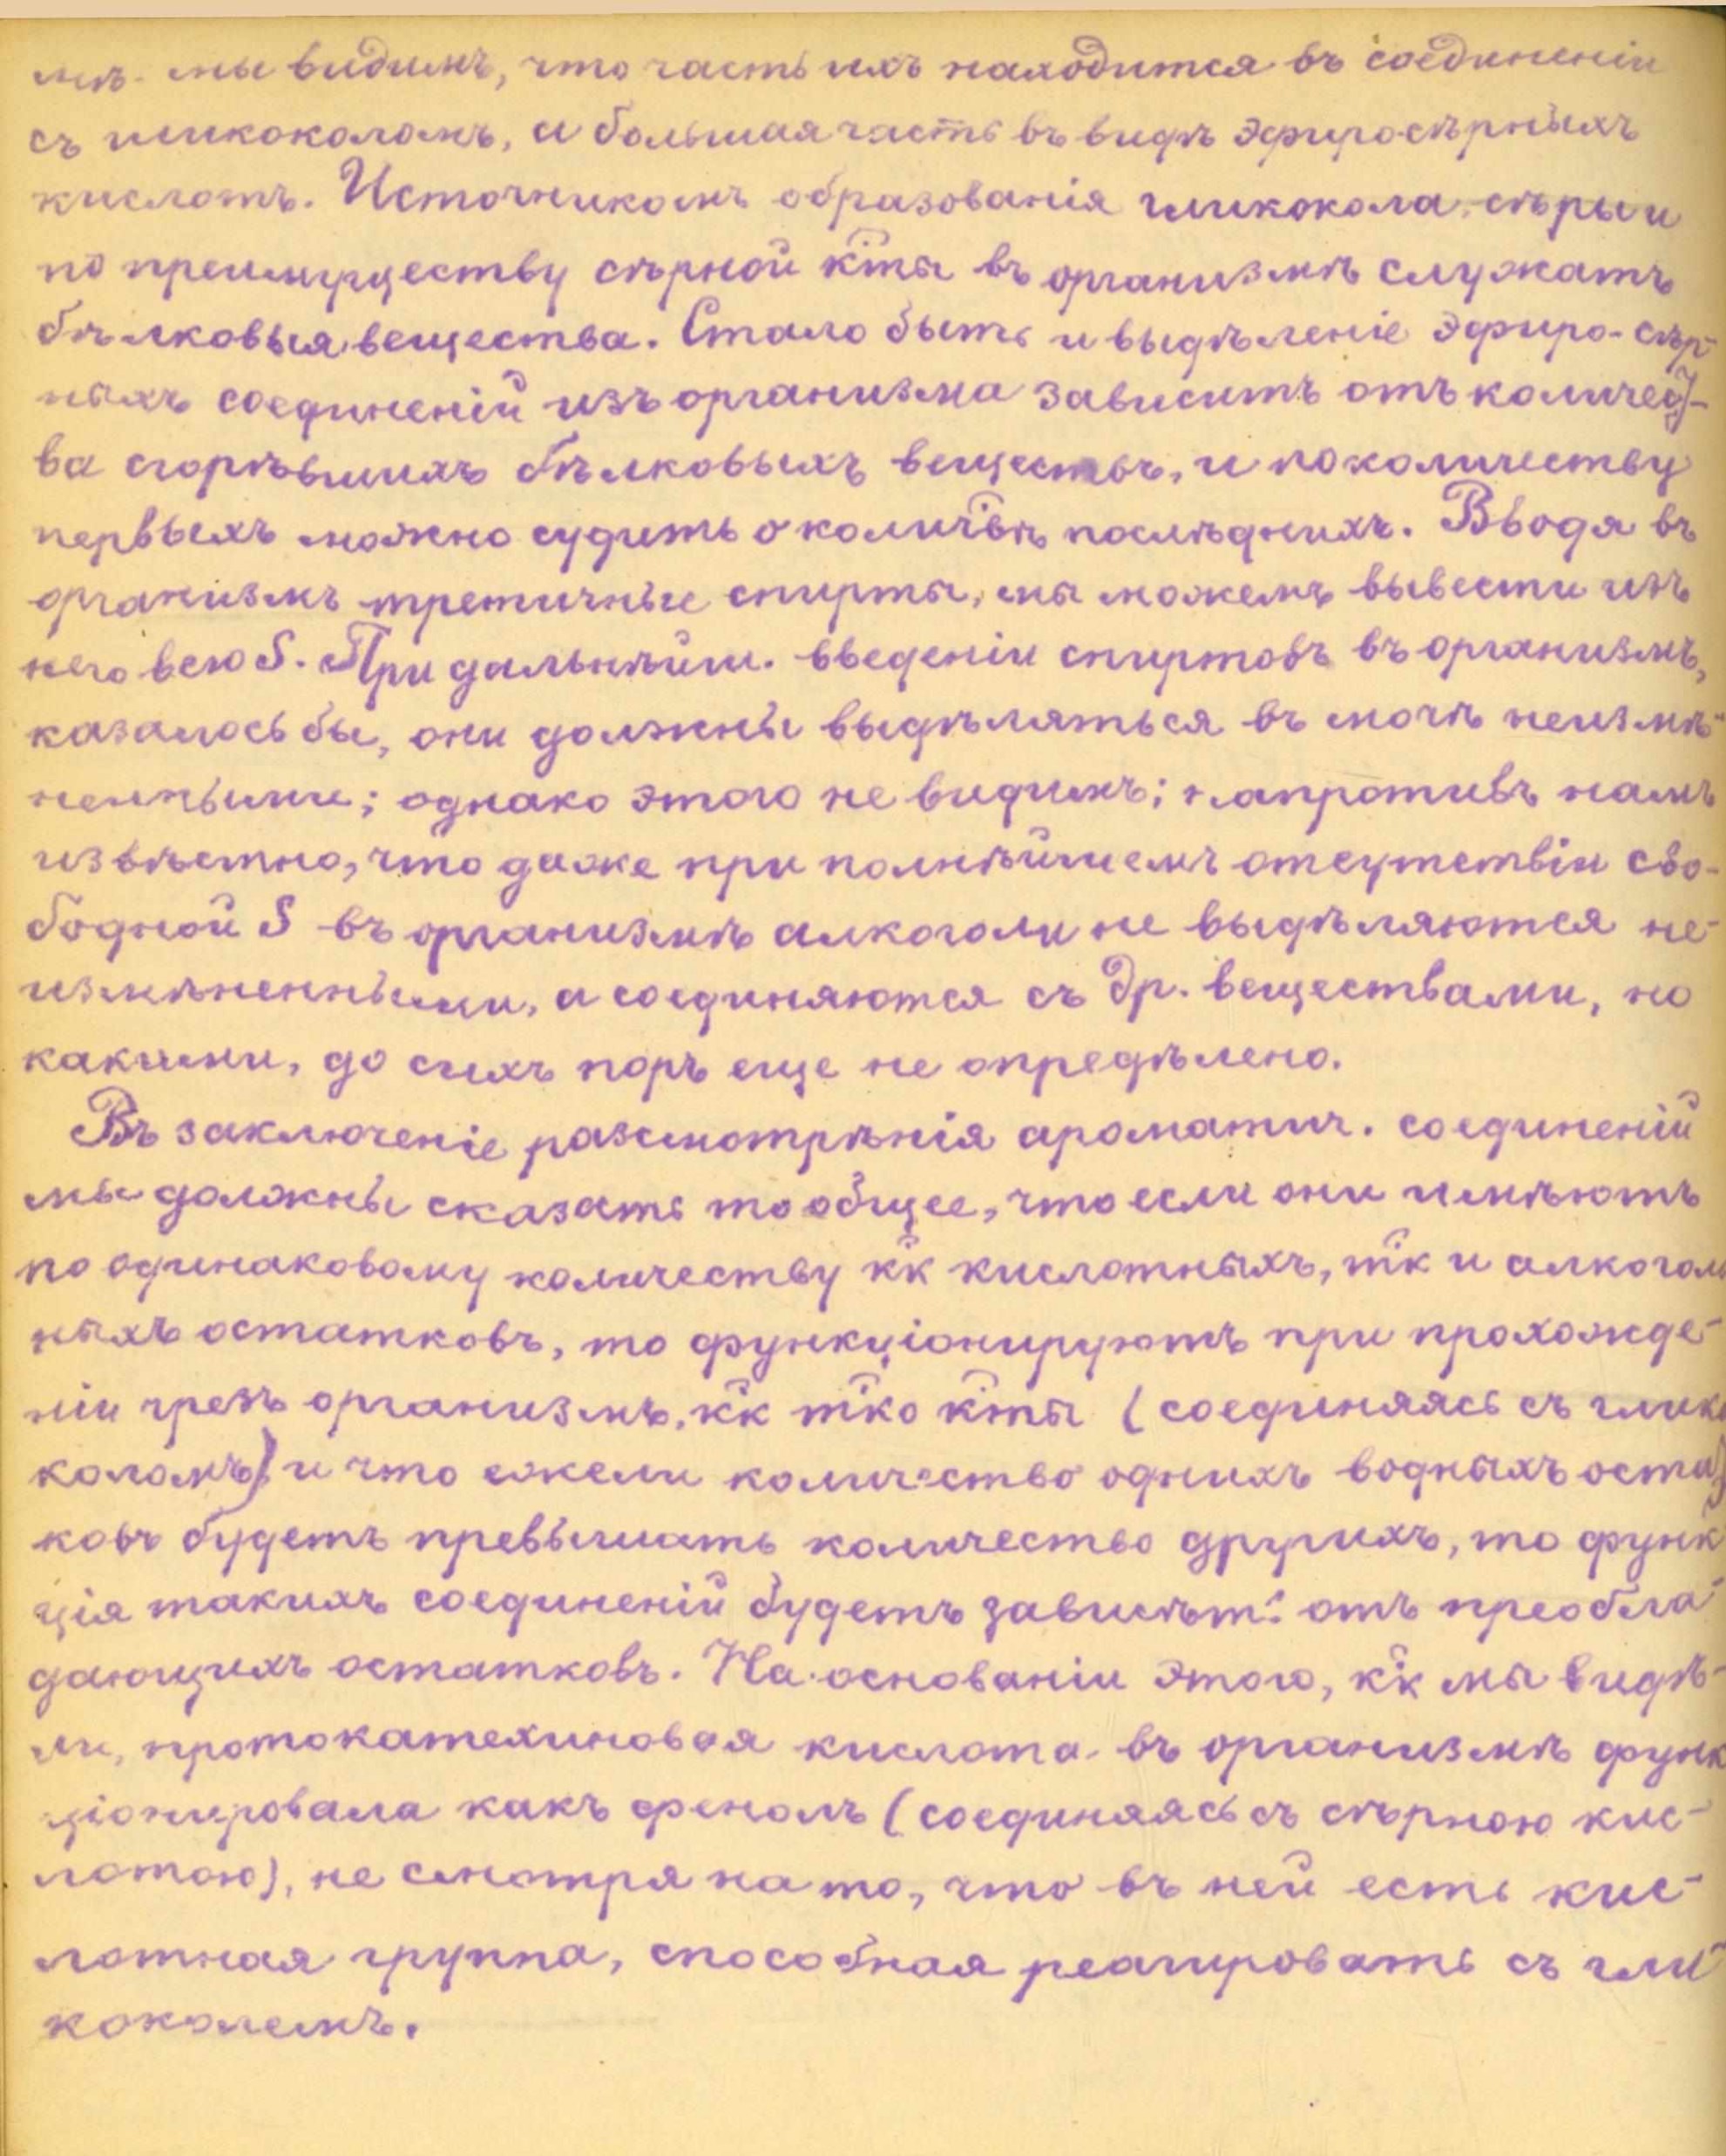 мѣ мы видимъ, что часть ихъ находится въ соединеніи
съ гликоколомъ, а большая часть въ видѣ эфиро-сѣрныхъ
кислотъ. Источникомъ образованія гликокола, сѣры и
по преимуществу сѣрной к̑ты въ организмѣ служатъ
бѣлковыя вещества. Стало быть и выдѣленіе эфиро-сѣр-
ныхъ соединеній изъ организма зависитъ отъ количест-
ва сгорѣвшихъ бѣлковыхъ веществъ, и по количеству
первыхъ можно судить о колич̑вѣ послѣднихъ. Вводя въ
организмъ третичные спирты, мы можемъ вывести изъ
него всю S. При дальнѣйш. введеніи спиртовъ въ организмъ,
казалось бы, они должны выдѣляться въ мочѣ неизмѣ-
ненными; однако этого не видимъ; напротивъ намъ
извѣстно, что даже при полнѣйшемъ отсутствіи сво-
бодной S въ организмѣ алкоголи не выдѣляются не-
измѣненными, а соединяются съ др. веществами, но
какими, до сихъ поръ еще не опредѣлено.
Въ заключеніе разсмотрѣнія ароматич. соединеній
мы должны сказать то общее, что если они имѣютъ
по одинаковому количеству к̑к кислотныхъ, т̑к и алкоголь
ныхъ остатковъ, то функціонируютъ при прохожде-
ніи чрезъ организмъ, к̑к т̑ко к̑ты (соединяясь съ глико
коломъ) и что ежели количество однихъ водныхъ остат
ковъ будетъ превышать количество другихъ, то функ
ція такихъ соединеній будетъ зависѣть отъ преобла-
дающихъ остатковъ. На основаніи этого, к̑к мы видѣ-
ли, протокатехиновая кислота въ организмѣ функ
ціонировала какъ фенолъ (соединяясь съ сѣрною кис-
лотою), не смотря на то, что въ ней есть кис-
лотная группа, способная реагировать съ гли-
коколемъ.